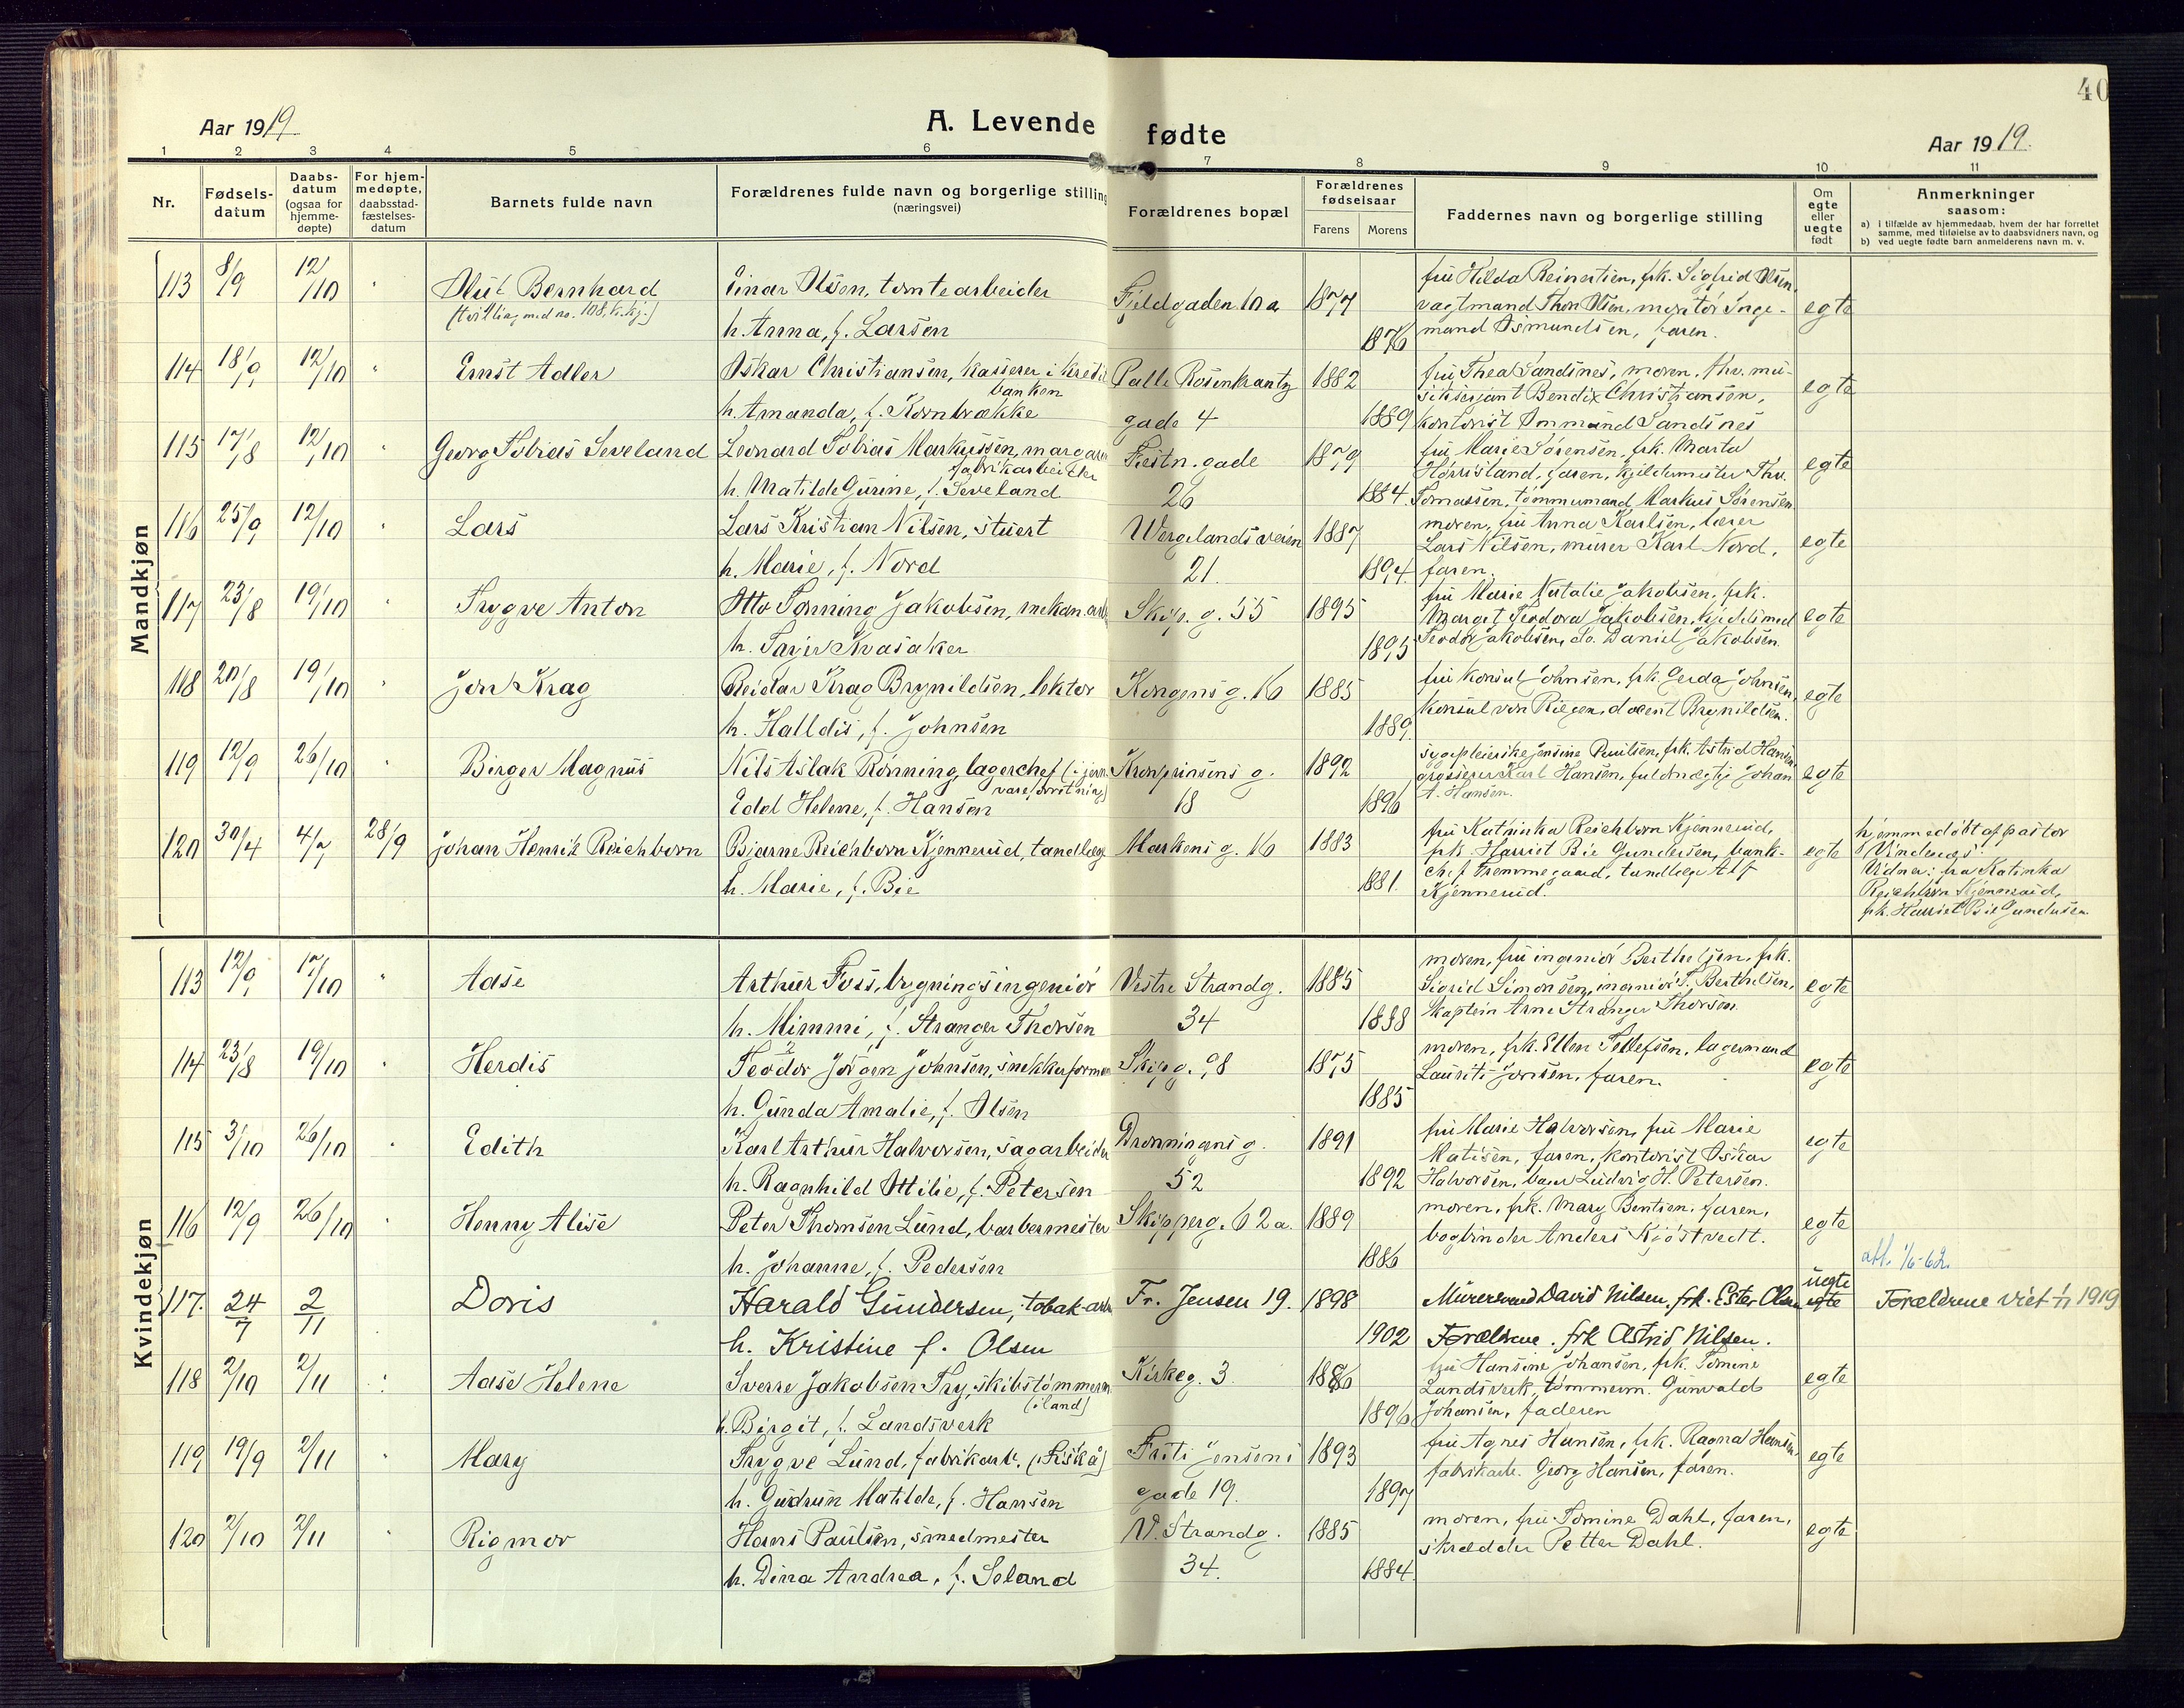 40
Aar 1919
A. Levende fødte
Aar 1919.
1 2 3 4 5 6 7 8 9 10 11
Nr.
Fødsels-datum
Daabs-datum (ogsaa for hjemme-døpte)
For hjem-medøpte, daabsstad-fæstelses-datum
Barnets fulde navn
Forældrenes fulde navn og borgerlige stilling (næringsvei)
Forældrenes bopæl
Forældrenes fødselsaar
Farens Morens
Faddernes navn og borgerlige stilling
Om egte eller uegte født
Anmerkninger saasom:
a) i tilfælde av hjemmedaab, hvem der har forrettet samme, med tilføielse av to daabsvidners navn, og
b) ved uegte fødte barn anmelderens navn m. v.
Mandkjøn
113 8/9 12/10 " Olut Bernhard Einar Olsen, tomtearbeider Fjeldgaden 10a 1877 fru Hilda Reinertsen, frk. Sigfrid Olsen,
(tvilling med no. 108, k.kj.) vagtmand Thor Olsen, montør Inge- egte
h. Anna, f. Larsen 1876 mand Osmundsen, faren.
114 18/9 12/10 " Ernst Adler Oskar Christiansen, kasserer i kredit Palle Rosenkrantz 1882 fru Thea Sandsnes, moren, fhv. mu-
banken siksersjant Bendix Christiansen, egte
h. Amanda, f. Kornbrække gade 4 1889 kontorist Ommund Sandsnes
115 17/8 12/10 " Georg Tobias Seveland Leonard Tobias Markussen, margarin Festn. gade 1879 fru Marie Sørensen, frk. Marta
fabrikarbeider faren, egte
h. Matilde Gurine, f. Seveland 26 1884 Tomassen, tømmermand Markus Sørensen
116 25/9 12/10 " Lars Lars Kristian Nilsen, stuert Wergelandsveien 1887 moren, fru Anna Karlsen, lærer
Lars Nilsen, murer Karl Nord, egte
h. Marie, f. Nord 21. 1894 faren.
117 23/8 19/10 " Trygve Anton Otto Tønning Jakobsen, mekan. arb Skip. g. 55 1895 fru Marie Natalie Jakobsen, frk.
Margit Teodora Jakobsen, egte
h. Tarjer Kvasaker 1895 Teodor Jakobsen, do. Daniel Jakobsen.
118 20/8 19/10 " Jon Krag Reidar Krag Brynildsen, lektor Kongens g. 16 1885 fru konsul Johnsen, frk. Gerda Johnsen, egte
h. Halldis, f. Johnsen 1889. konsul von docent Brynildsen.
119 12/9 26/10 " Birger Magnus Nils Aslak Rønning, lagerchef (i jern- Kronprinsens g. 1892 sygepleierske Jensine Paulsen, frk. Astrid Hansen
vareforretning) grosserer Karl Hansen, fuldmægtig Johan egte
Edd Helene, f. Hansen 18 1896 A. Hansen.
120 30/4 4/7 28/9 Johan Henrik Reichborn Bjarne Reichborn Kjennerud, tandlæge Markens g. 16 1883 fru Katinka Reichborn Kjennerud, hjemmedøbt af pastor
frk. Harriet Bie Gundersen, bank- egte Vindenæs.
h. Marie, f. Bie 1881. chef Fremmegaard, tandlæge Alf Vidner: fru Katinka
Kjennerud. Reichborn Kjennerud,
frk. Harriet Bie Gundersen
Kvindekjøn
113 12/9 17/10 " Aase Arthur Foss, bygningsingeniør Vestre Strandg. 1885 moren, fru ingeniør Berthelsen, frk.
Sigrid Simonsen, ingeniør S. Berthelsen, egte
h. Mimmi, f. Stranger Thorsen 34 1888 kaptein Arne Stranger Thorsen.
114 23/8 19/10 " Herdis Teodor Jørgen Johnsen, snekkerformann Skipg. 98 1875 moren, frk. Ellen Tellefsen, lagermand egte
h. Gunda Amalie, f. Olsen 1885 Laurits Jonsen, faren.
115 3/10 26/10 " Edith Karl Arthur Halvorsen, sagarbeider Dronningens g. 1891 fru Marie Halvorsen, fru Marie
Matisen, faren, kontorist Oskar egte
h. Ragnhild Otilie, f. Petersen 52 1892 Halvorsen, Ludvig H. Petersen.
116 12/9 26/10 " Henny Alise Peter Thomsen Lund, barbermester Skipperg. 62a. 1889 moren, frk. Mary Bentsen, faren, egte
bogbinder Anders Kjøstvedt.
h. Johanne, f. Pedersen 1886
att. 1/6-62.
117. 24/7 2/11 Doris Harald Gundersen, tobak-arb Fr. Jensen 19. 1898 Murersvend David Nilsen, frk. Ester Olsen uegte egte Forældrene viet 1/11 1919
h. Kristine f. Olsen 1902 Forældrene. frk Astrid Nilsen.
118 2/10 2/11 " Aase Helene Sverre Jakobsen Try, skibstømmerm. Kirkeg. 3. 1886 fru Hansine Johansen, frk. Tomine
(i land) Landsverk, tømmerm. Gunvald egte
h. Birgit, f. Landsverk 1896 Johansen, faderen
119 19/9 2/11 Mary Trygve Lund, fabrikarb. (Fiskå) Frits Jensens 1893 fru Agnes Hansen, frk. Ragna Hansen, egte
h. Gudrun Matilde, f. Hansen gade 19. 1897 fabrikarb. Georg Hansen, faren.
120 2/10 2/11 " Rigmor Hans Paulsen, smedmester V. Strandg. 1885 moren, fru Tomine Dahl, faren, egte
skrædder Petter Dahl.
h. Dina Andrea, f. Seland 34. 1884